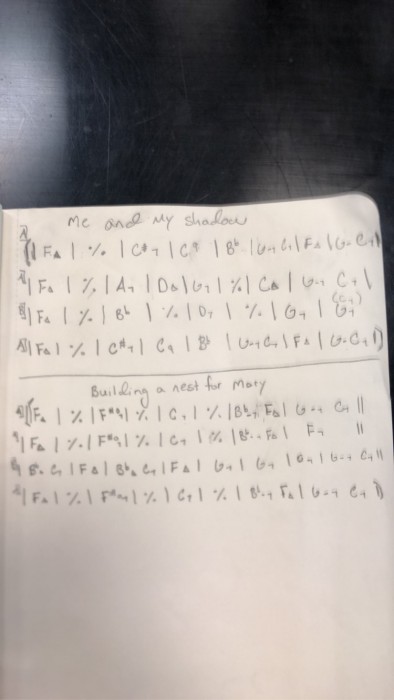 Me and My Shadow
A || F△ | % | C#7 | C7 | Bb | G-7 C7 | F△ | G- C7 |
A | F△ | % | A7 | D△ | G7 | % | C△ | G-7 C7 |
B | F△ | % | Bb | % | D7 | % | G7 | G7 (C7)
A | F△ | % | C#7 | C7 | Bb | G-7 C7 | F△ | G- C7 ||
Building a nest for Mary
| F△ | % | F#o7 | % | C7 | % | Bb-7 F△ | G-7 C7 ||
| F△ | % | F#o7 | % | C7 | % | Bb-7 F△ | F7 ||
| Bb△ C7 | F△ | Bb△ C7 | F△ | G7 | G7 | G7 | G-7 C7 ||
| F△ | % | F#o7 | % | C7 | % | Bb-7 F△ | G-7 C7 ||